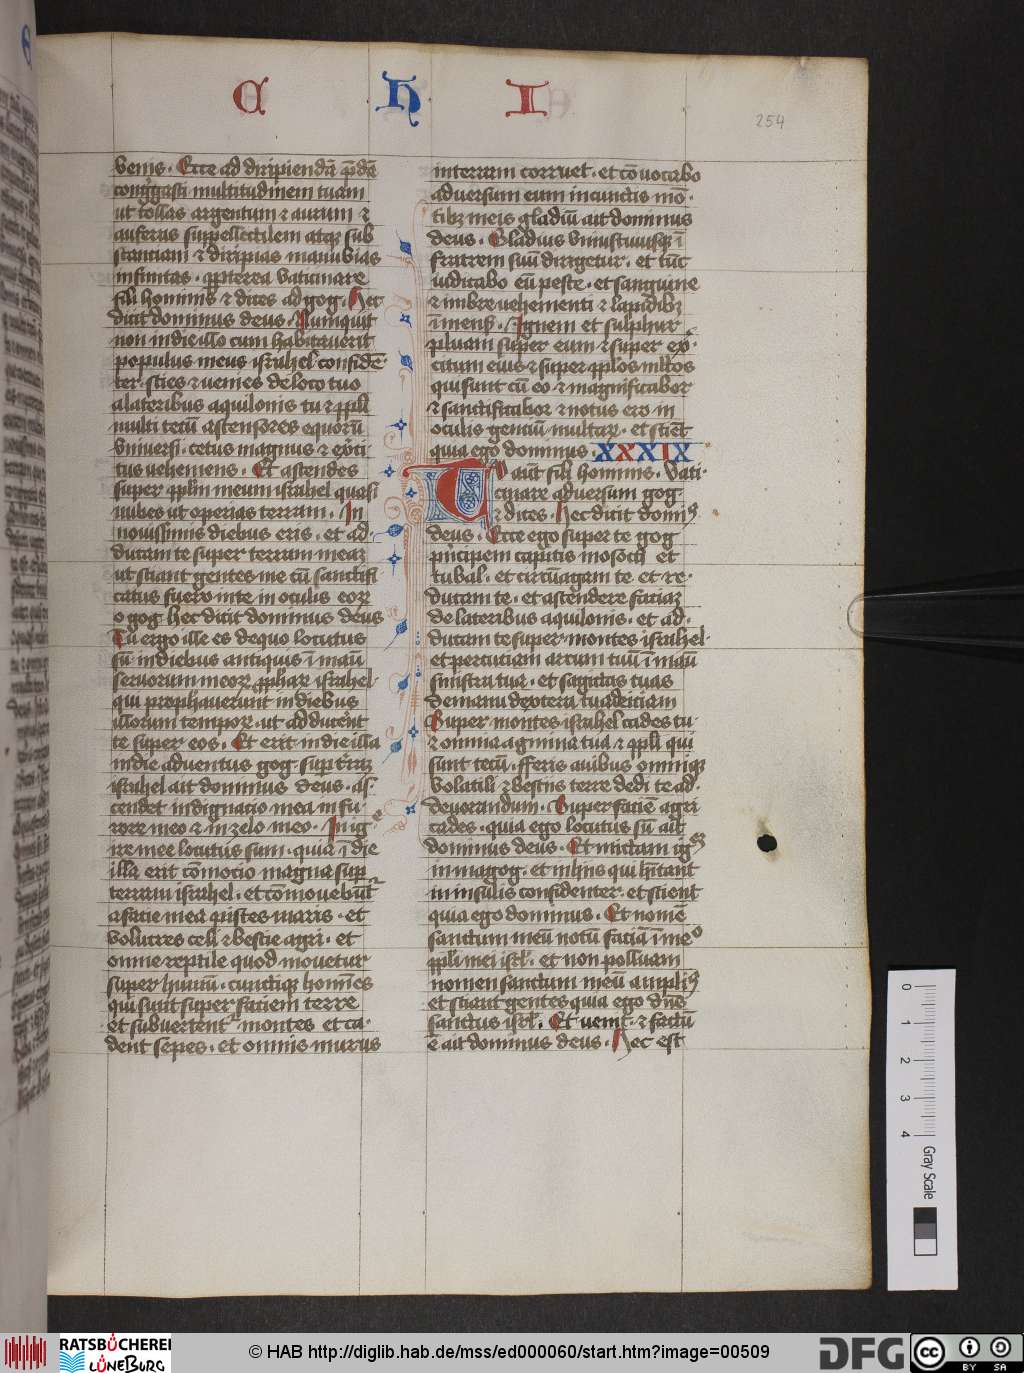 C H I
254
venis. Ecce ad diripiendā p̄dā
cong̃gasti multitudinem tuam
ut tollas argentum ⁊ aurum ⁊
auferas suppellectilem atqꝫ sub
stantiam ⁊ diripias manubias
infinitas. ꝓpterea vaticinare
fili hominis ⁊ dices ad gog. Hec
dicit dominus deus. Numquit
non in die illo cum habitauerit
populus meus israhel confidē-
ter. scies ⁊ venies de loco tuo
a lateribus aquilonis tu ⁊ ppl̄i
multi tecū ascensores equorū
vniuersi. cetus magnus ⁊ ex̄ci
tus vehemens. Et ascendes
super pplm̄ meum israhel quasi
nubes ut operias terram. In
nouissimis diebus eris. et ad-
ducam te super terram meaꝫ
ut sciant gentes me cū sanctifi
catus fuero in te in oculis eoꝝ
o gog hec dicit dominus deus
Tu ergo ille es de quo locutus
sū in diebus antiquis ī manū
seruorum meoꝝ ꝓpħaꝝ israhel
qui prophauerunt in diebus
illorum tempoꝝ. ut adducerēt
te super eos. Et erit in die illa
in die aduentus gog sup terrā
israhel ait dominus deus. as-
cendet indignacio mea in fu-
rore meo ⁊ in zelo meo. In ig-
ne mee locutus sum. quia ī die
illa erit cōmocio magna sup
terram israhel. et cōmouebūt᷑
a facie mea pisces maris. et
volucres celi ⁊ bestie agri. et
omne reptile quod mouetur
super humū. cunctiqꝫ homīes
qui sunt super faciem terre
et subuertent᷑ montes et ca-
dent sepes. et omnis murus
in terram corruet. et cōuocabo
aduersum eum in cunctis mō-
tibꝫ meis gladiū ait dominus
deus. Gladius vniuscuiusqꝫ ī
fratrem suū dirigetur. et tūc
iudicabo eū peste. et sanguine
⁊ imbre vehementi ⁊ lapidibꝫ
īmensꝭ. Ignem et sulphur
pluam super eum ⁊ super ex̄-
citum eius ⁊ super pplos ml̄tos
qui sunt cū eo. ⁊ magnificabor
⁊ sanctificabor ⁊ notus ero in
oculis genciū multaꝝ. et sciēt
quia ego dominus. XXXIX
Tu aūt fili hominis. vati-
cinare aduersum gog
⁊ dices. Hec dicit domiꝰ
deus. Ecce ego super te gog
prīcipem capitis mosoch et
tubal. et circūagam te. et re-
ducam te. et ascendere faciaꝫ
de lateribus aquilonis. et ad-
ducam te super montes israhel.
et percuciam arcum tuū ī manū
sinistra tua. et sagittas tuas
de manu dextera tua deiciam
Super montes israhel cades tu
⁊ omnia agmina tua ⁊ ppl̄i qui
sunt tecū. fferis auibus omniqꝫ
volatili ⁊ bestiis terre dedi te ad-
deuorandum. Super faciē agri
cades. quia ego locutus sū ait
dominus deus. Et mictam igneꝫ
in magog. et in hiis qui hītant
in insulis confidenter. et scient
quia ego dominus. Et nomē
sanctum meū notū faciā ī meo
ppl̄i mei isrl̄. et non polluam
nomen sanctum meū ampliꝰ
et sciant gentes quia ego dn̄s
sanctus isrl̄. Et venit. ⁊ factū
ē ait dominus deus. Hec est
0 1 2 3 4 Gray Scale
RATSBÜCHEREI
LÜNEBURG
© HAB http://diglib.hab.de/mss/ed000060/start.htm?image=00509
DFG
cc BY SA